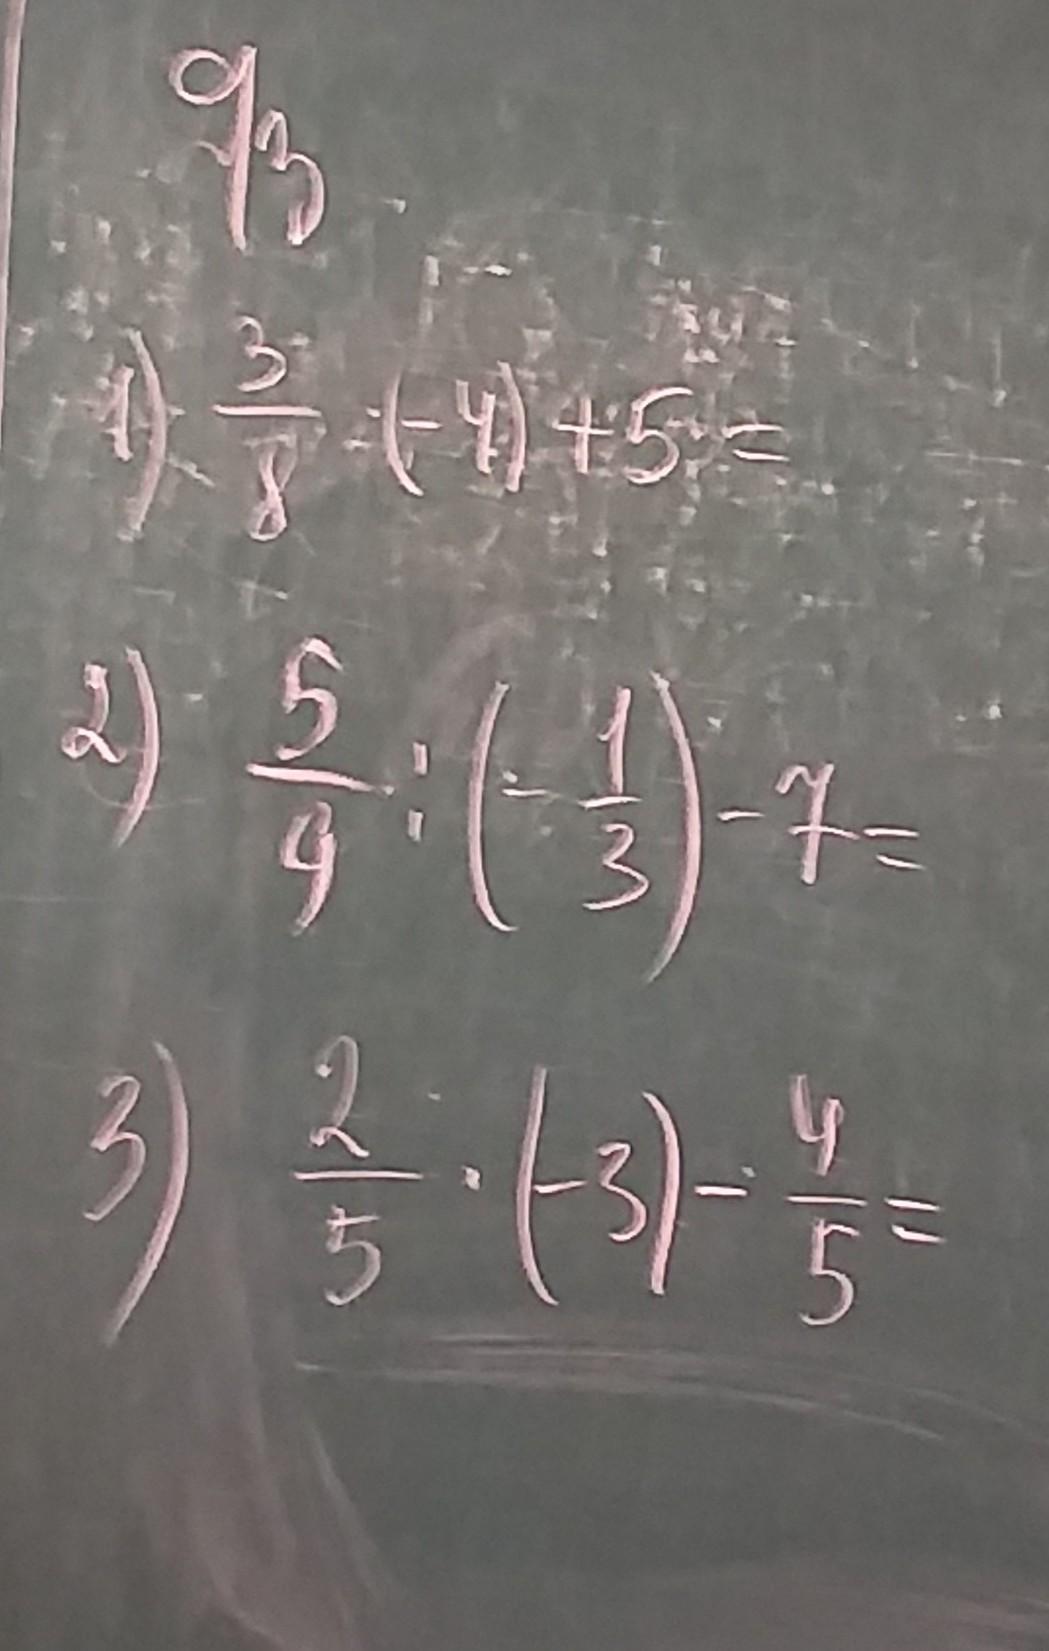 1) 3/8 · (-4) + 5 =
2) 5/9 : (- 1/3) - 7 =
3) 2/5 · (-3) - 4/5 =